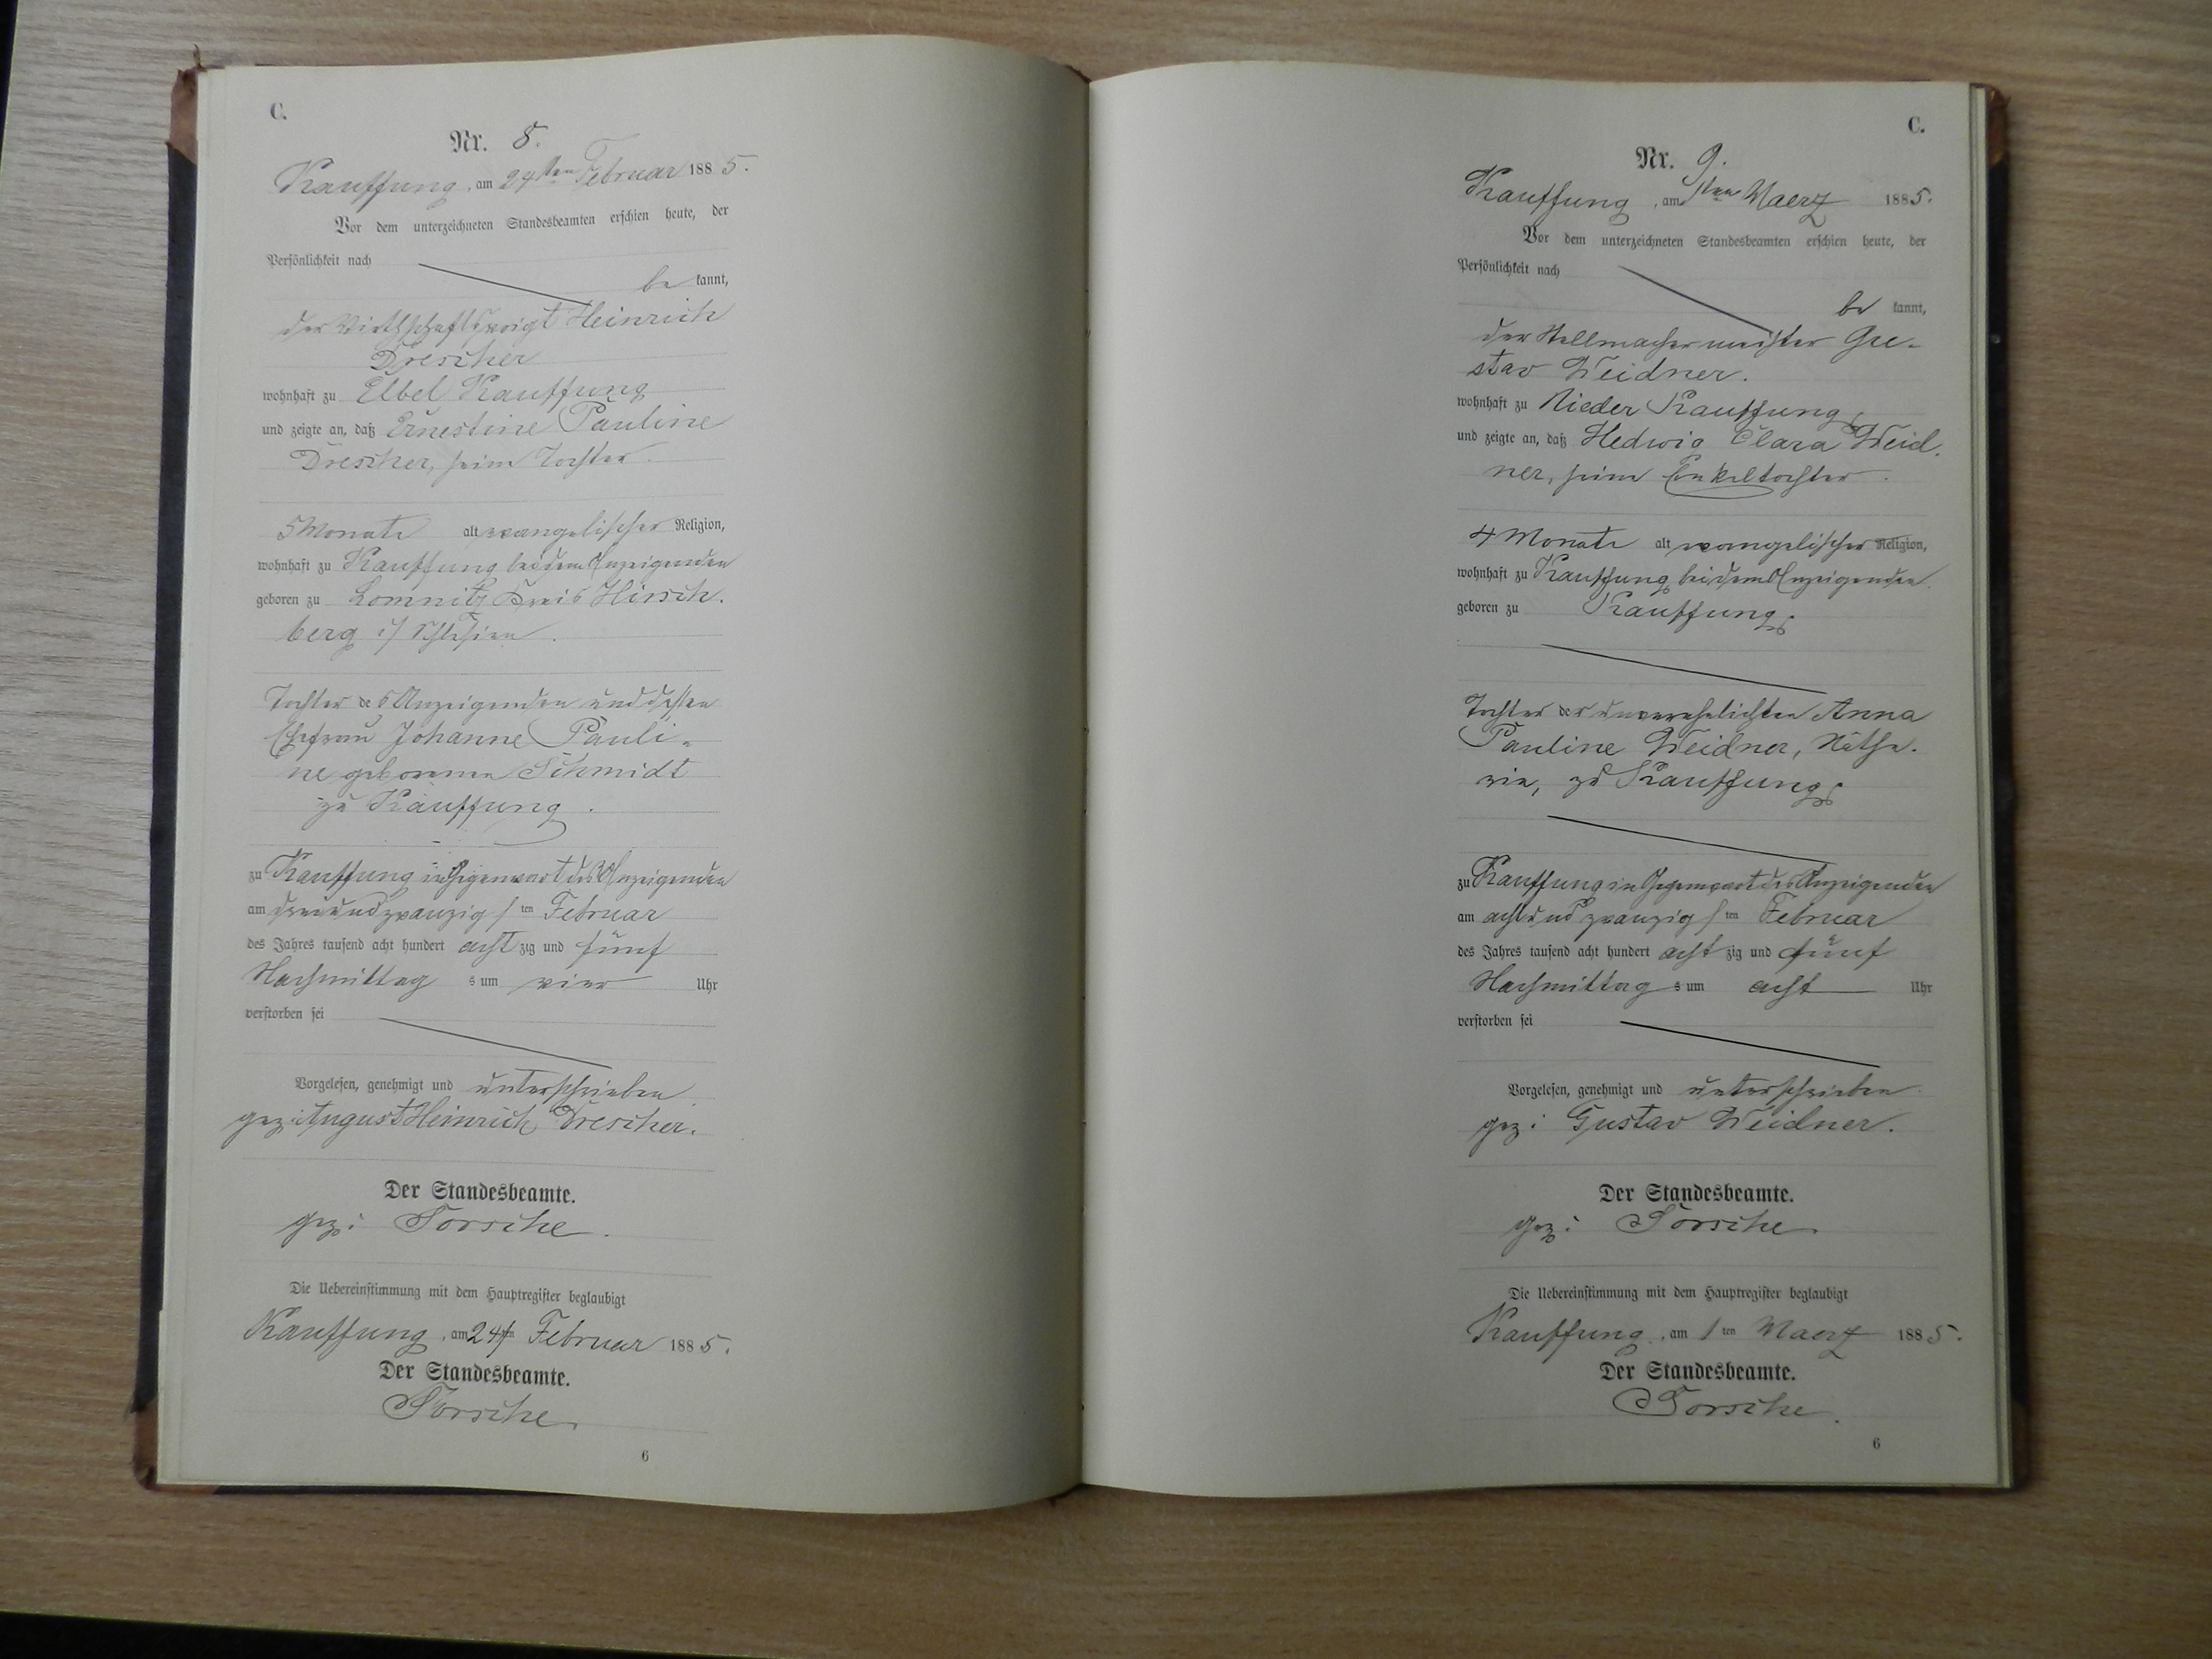 C.
Nr. 8.
Kauffung, am 24ten Februar 1885.
Vor dem unterzeichneten Standesbeamten erschien heute, der
Persönlichkeit nach
be kannt,
der Wirthschaftsvoigt Heinrich
Drescher
wohnhaft zu Elbel Kauffung
und zeigte an, daß Ernestine Pauline
Drescher, seine Tochter.
5 Monate alt evangelischer Religion,
wohnhaft zu Kauffung bei dem Anzeigenden
geboren zu Lomnitz Kreis Hirsch-
berg i/ Schlesien.
Tochter des Anzeigenden und dessen
Ehefrau Johanne Pauli-
ne geborenen Schmidt
zu Kauffung.
zu Kauffung in Gegenwart des Anzeigenden
am dreiundzwanzigsten Februar
des Jahres tausend acht hundert achtzig und fünf
Nachmittags um vier Uhr
verstorben sei
Vorgelesen, genehmigt und unterschrieben
gez: August Heinrich Drescher.
Der Standesbeamte.
gez:
Die Uebereinstimmung mit dem Hauptregister beglaubigt
Kauffung, am 24ten Februar 1885.
Der Standesbeamte.
6
C.
Nr. 9.
Kauffung, am 1ten Maerz 1885.
Vor dem unterzeichneten Standesbeamten erschien heute, der
Persönlichkeit nach
be kannt,
der Stellmachermeister Gu-
stav Weidner.
wohnhaft zu Nieder Kauffung
und zeigte an, daß Hedwig Clara Weid-
ner, seine Enkeltochter.
4 Monate alt evangelischer Religion,
wohnhaft zu Kauffung bei dem Anzeigenden.
geboren zu Kauffung
Tochter der unverehelichten Anna
Pauline Weidner, Nähte-
rin, zu Kauffung
zu Kauffung in Gegenwart des Anzeigenden
am achtundzwanzigsten Februar
des Jahres tausend acht hundert achtzig und fünf
Nachmittags um acht Uhr
verstorben sei
Vorgelesen, genehmigt und unterschrieben
gez: Gustav Weidner.
Der Standesbeamte.
gez:
Die Uebereinstimmung mit dem Hauptregister beglaubigt
Kauffung, am 1ten Maerz 1885.
Der Standesbeamte.
6